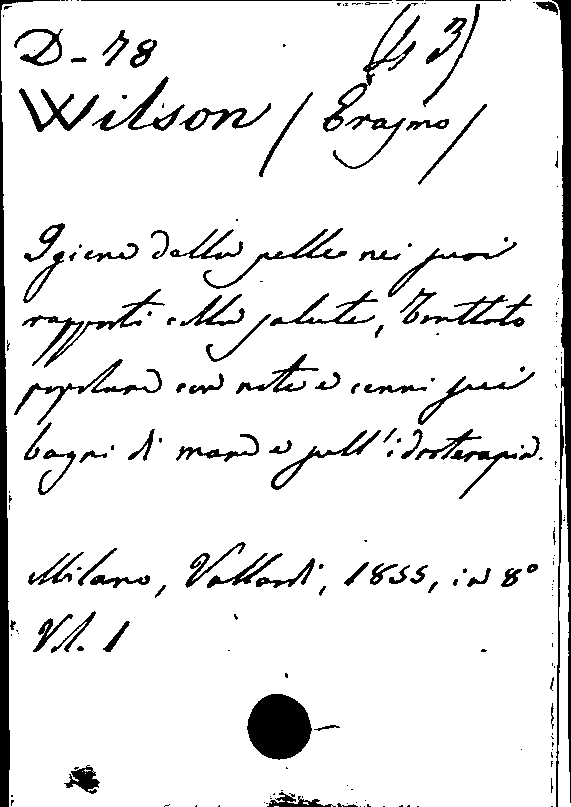 D-78 (43)
Wilson / Erasmo /
Igiene della pelle nei suoi
rapporti alla salute, Trattato
popolare con note e cenni sui
bagni di mare e sull'idroterapia.
Milano, Vallardi, 1855, in 8°
Vol. 1